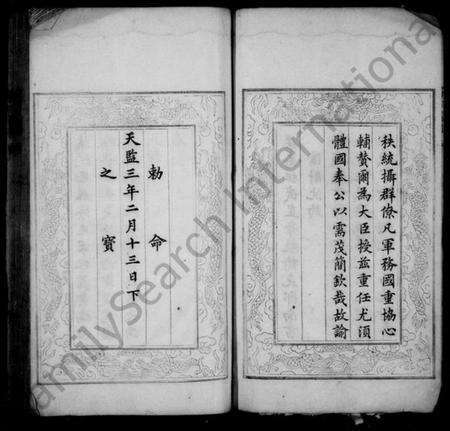 秩統攝群僚凡軍務國重協心
輔贊爾為大臣授茲重任尤須
體國奉公以需茂簡欽哉故諭
勅命
天監三年二月十三日下
之寶
FamilySearch International